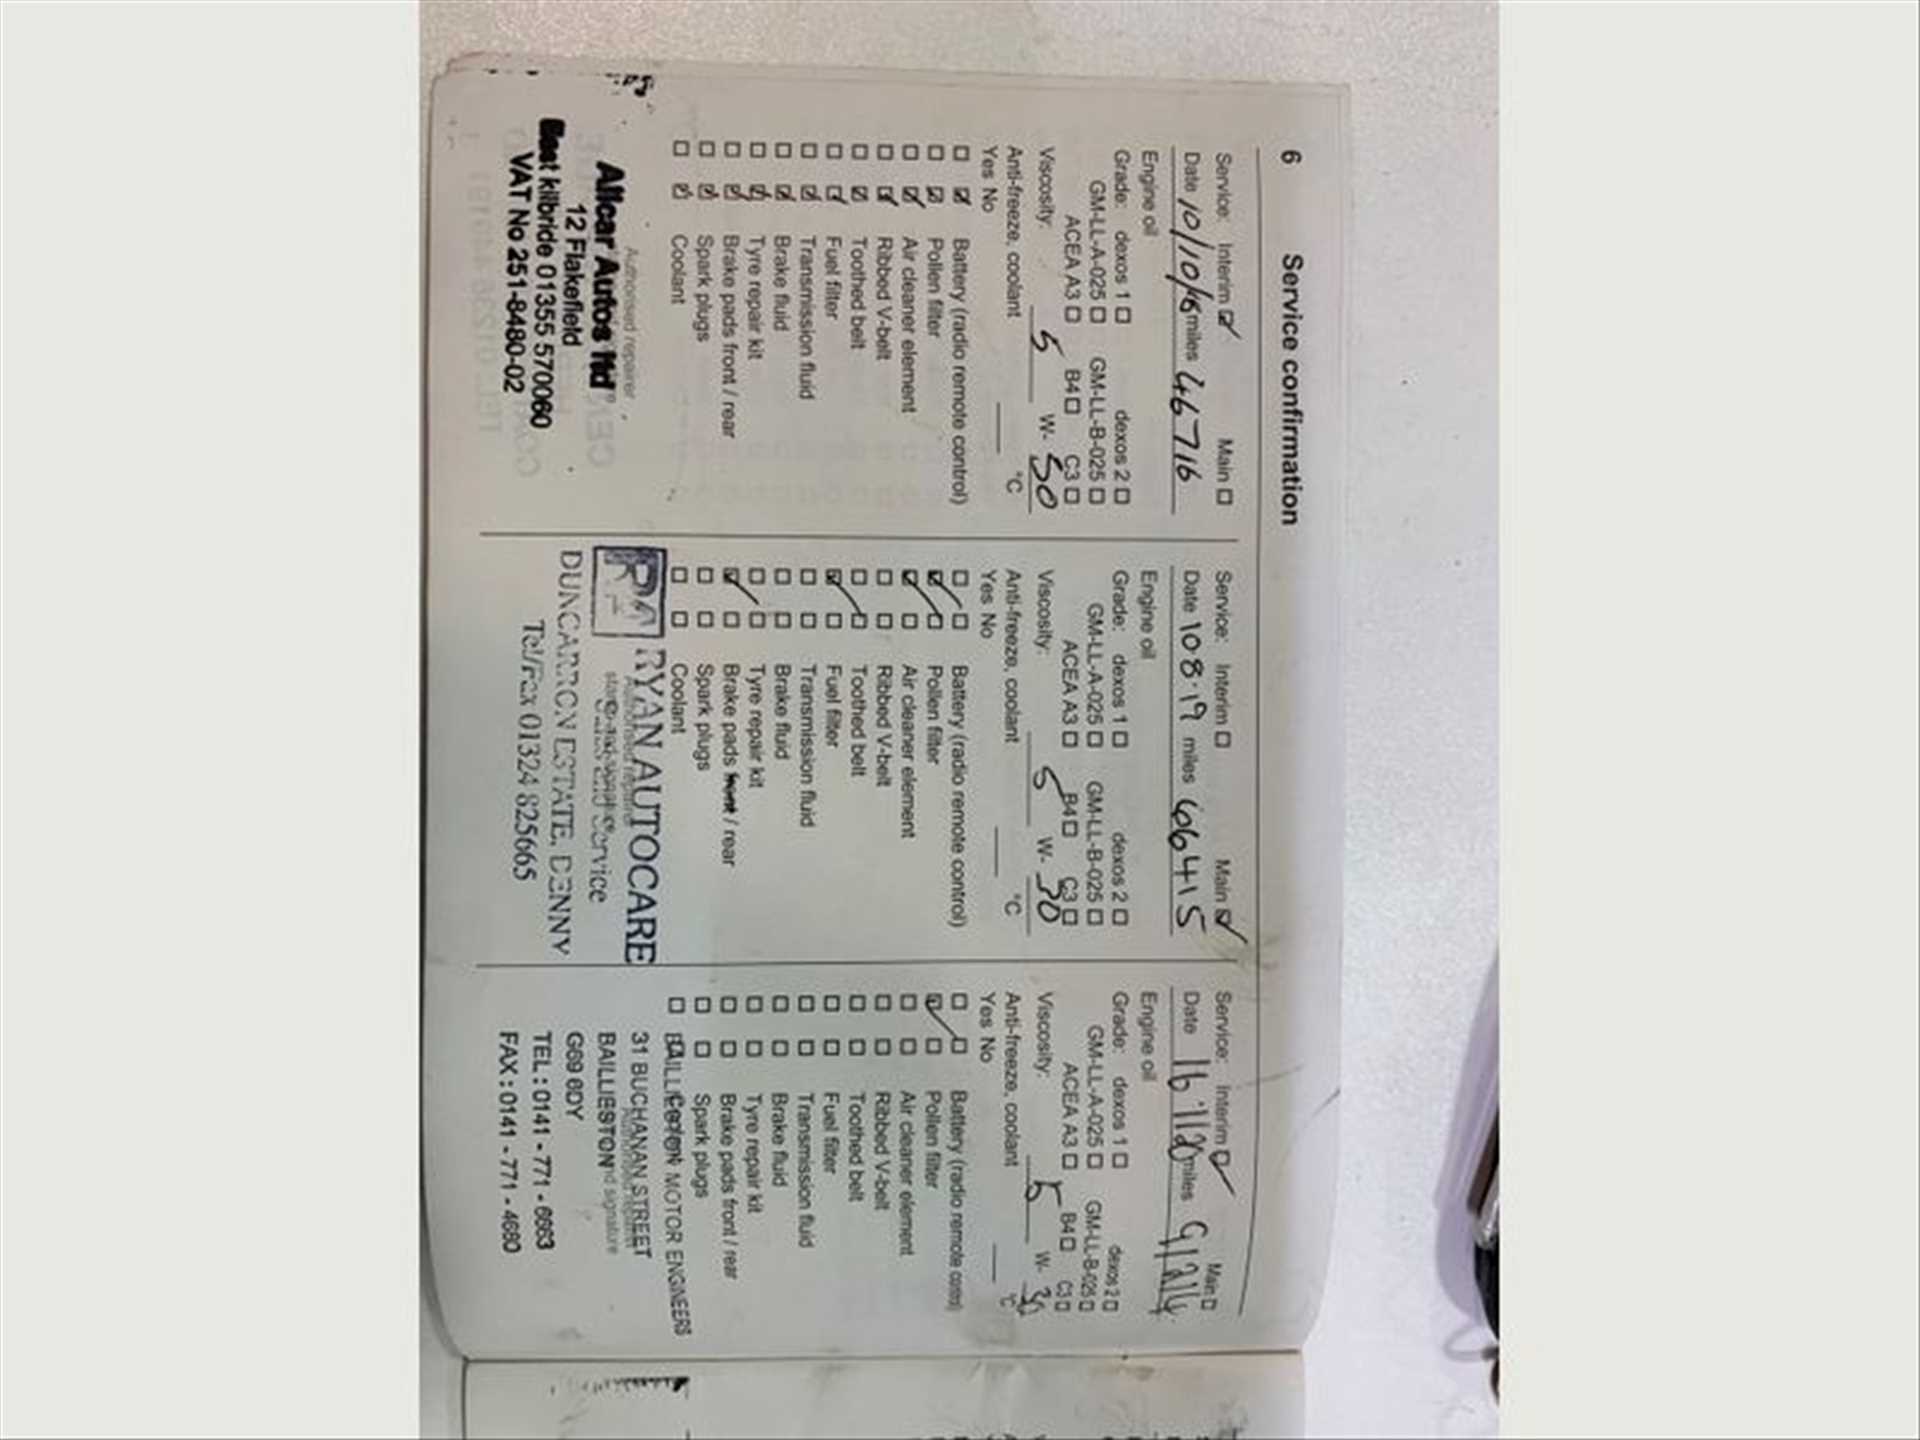 6 Service confirmation
Service: Interim Main
Date 10/10/16 miles 46716
Engine oil
Grade: dexos 1 dexos 2
GM-LL-A-025 GM-LL-B-025
ACEA A3 B4 C3
Viscosity: 5 W- 30
Anti-freeze, coolant °C
Yes No
Battery (radio remote control)
Pollen filter
Air cleaner element
Ribbed V-belt
Toothed belt
Fuel filter
Transmission fluid
Brake fluid
Tyre repair kit
Brake pads front / rear
Spark plugs
Coolant
Authorised repairer
Allcar Autos ltd
12 Flakefield
East kilbride 01355 570060
VAT No 251-8480-02
Service: Interim Main
Date 10.8.19 miles 66415
Engine oil
Grade: dexos 1 dexos 2
GM-LL-A-025 GM-LL-B-025
ACEA A3 B4 C3
Viscosity: 5 W- 30
Anti-freeze, coolant °C
Yes No
Battery (radio remote control)
Pollen filter
Air cleaner element
Ribbed V-belt
Toothed belt
Fuel filter
Transmission fluid
Brake fluid
Tyre repair kit
Brake pads front / rear
Spark plugs
Coolant
RA RYAN AUTOCARE
Authorised repairer
Service
DUNCARRON ESTATE, DENNY
Tel/Fax 01324 825665
Service: Interim Main
Date 16 11 20 miles
Engine oil
Grade: dexos 1 dexos 2
GM-LL-A-025 GM-LL-B-025
ACEA A3 B4 C3
Viscosity: 5 W- 30
Anti-freeze, coolant °C
Yes No
Battery (radio remote control)
Pollen filter
Air cleaner element
Ribbed V-belt
Toothed belt
Fuel filter
Transmission fluid
Brake fluid
Tyre repair kit
Brake pads front / rear
Spark plugs
Coolant
MOTOR ENGINEERS
31 BUCHANAN STREET
BAILLIESTON
G69 6DY
TEL: 0141 - 771 - 6663
FAX: 0141 - 771 - 4660